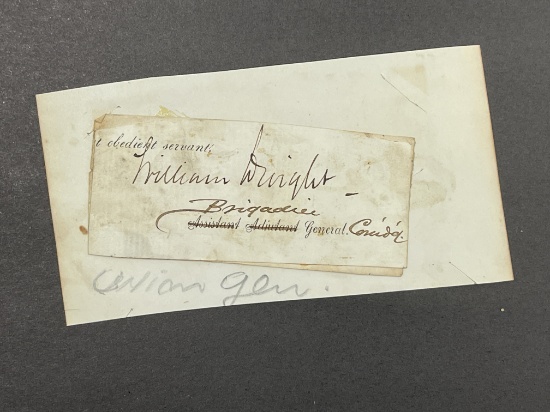 t obedient servant,
William Dwight
Brigadier
Assistant Adjutant General. Com'd'g
Union Gen.